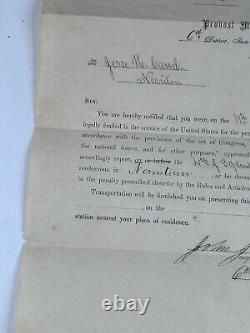 Provost M
6th District, State
To Jesse H. Cassel
Norriton
SIR:
You are hereby notified that you were, on the 11th
legally drafted in the service of the United States for the per
accordance with the provisions of the act of Congress,
the national forces, and for other purposes," approved
accordingly report, on or before the
rendezvous, in Norristown, or be deem
to the penalty prescribed therefor by the Rules and Articles
Transportation will be furnished you on presenting this
on the
station nearest your place of residence.
John J
6th